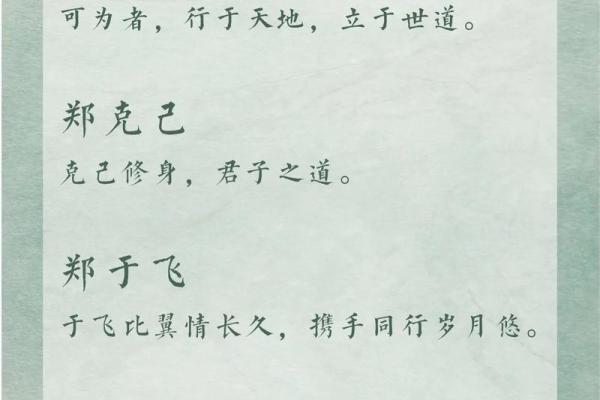 可为者，行于天地，立于世道。
郑克己
克己修身，君子之道。
郑于飞
于飞比翼情长久，携手同行岁月悠。